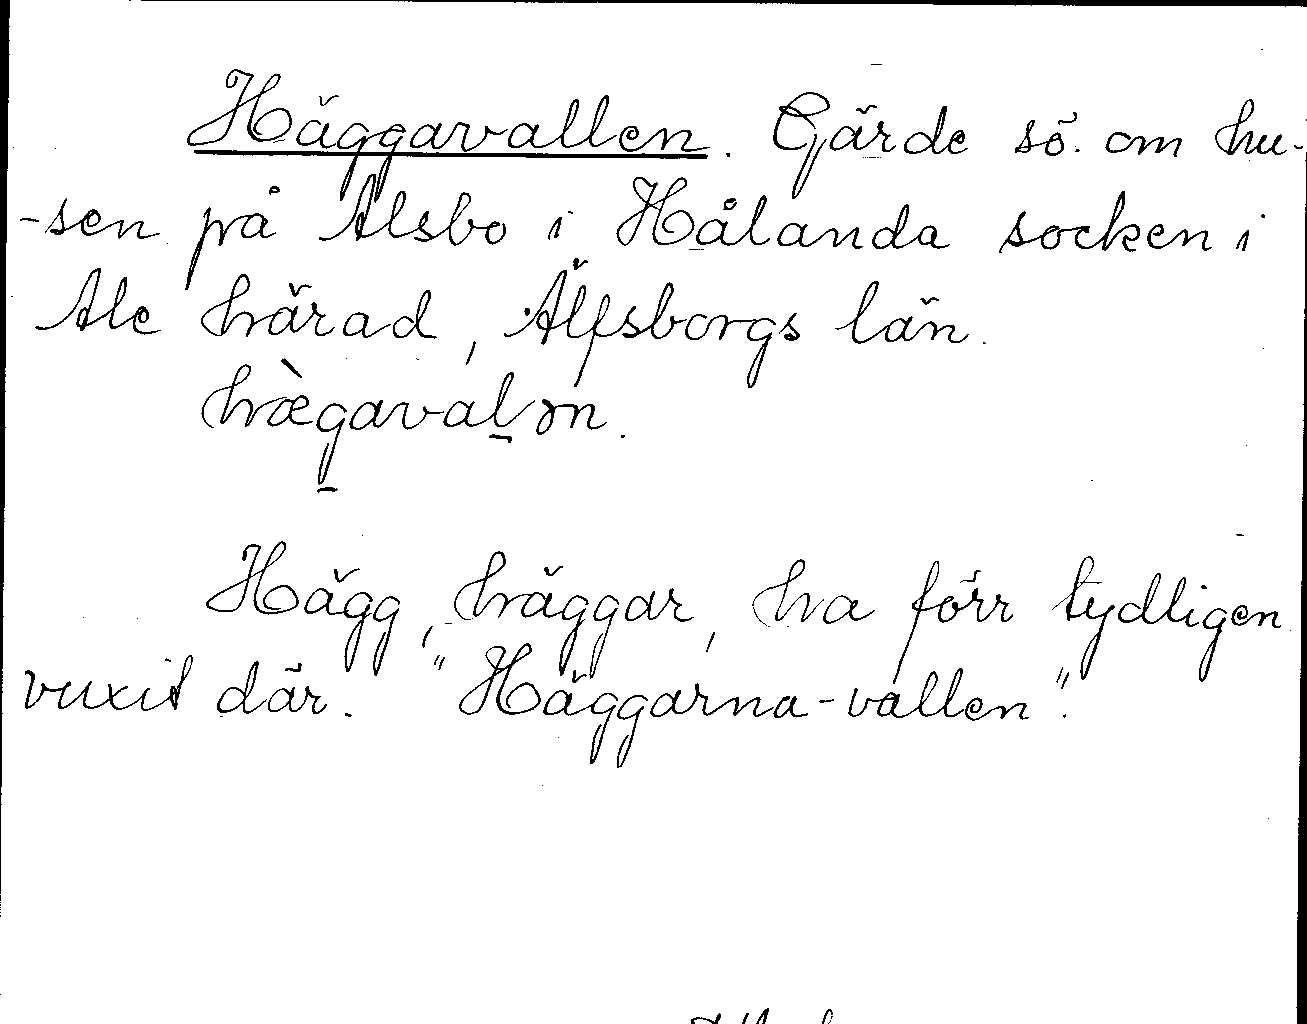 Häggavallen. Gärde sö. om hu-
-sen på Alsbo i Hålanda socken i
Ale härad, Älfsborgs län.
hæ̀g̱avaḻən.
Hägg, häggar, ha förr tydligen
vuxit där. "Häggarna-vallen".